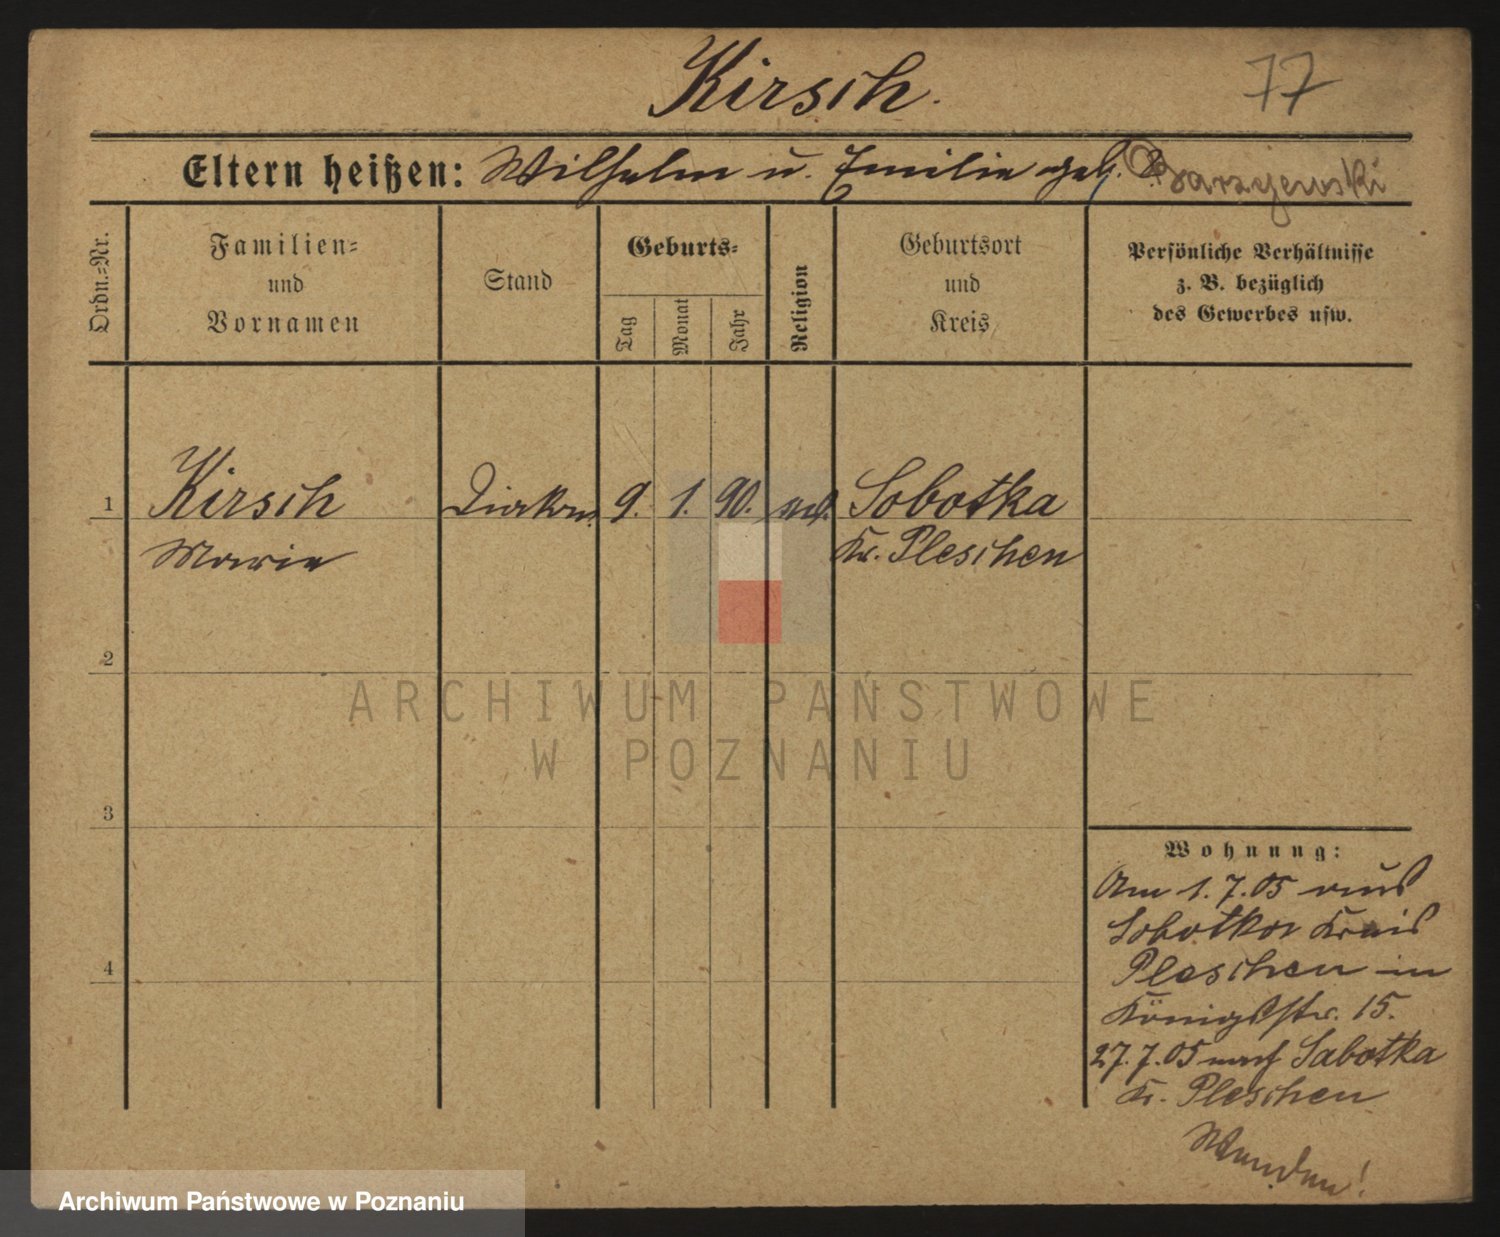 Kirsch.
77
Eltern heißen: Wilhelm u. Emilie geb. Barzyewski
Ordn.=Nr.
Familien=
und
Vornamen
Stand
Geburts=
Tag
Monat
Jahr
Religion
Geburtsort
und
Kreis
Persönliche Verhältnisse
z. B. bezüglich
des Gewerbes usw.
1
Kirsch
9. 1. 90.
Sobotka
Marie
Kr. Pleschen
2
ARCHIWUM PAŃSTWOWE
W POZNANIU
3
Wohnung:
Am 1. 7. 05 aus
Sobotka Kreis
Pleschen in
Königsstr. 15.
27. 7. 05 nach Sobotka
Kr. Pleschen
4
Archiwum Państwowe w Poznaniu